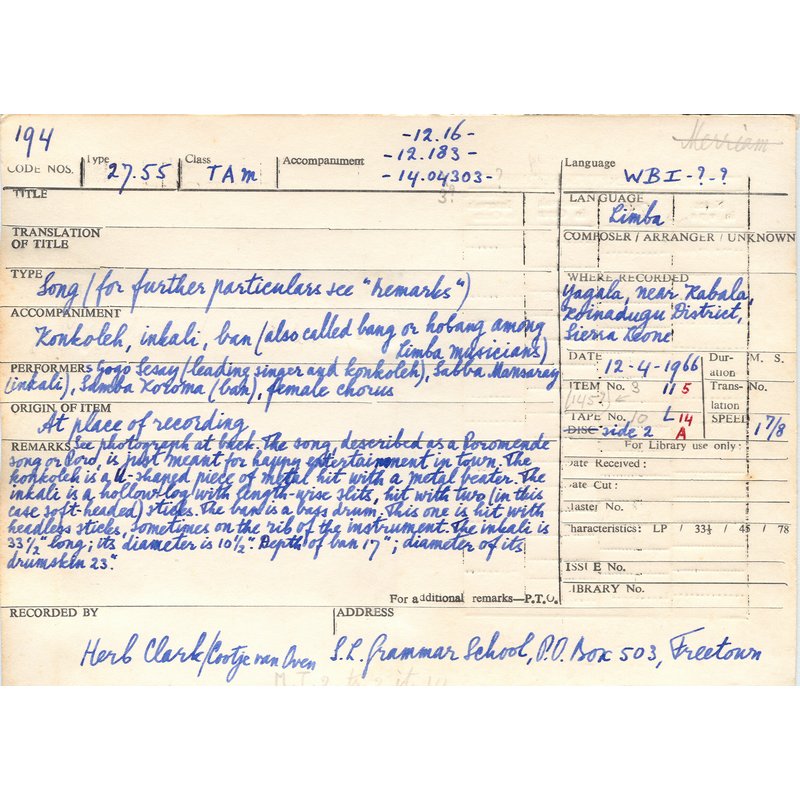 194
-12.16-
Merriam
CODE NOS.
Type 27.55
Class TAM
Accompaniment
-12.183-
-14.04303-
Language
WBI-?-?
TITLE
3?
?
LANGUAGE
Limba
TRANSLATION
OF TITLE
COMPOSER / ARRANGER / UNKNOWN
TYPE
Song (for further particulars see "remarks")
WHERE RECORDED
Yagala, near Kabala,
Koinadugu District,
Sierra Leone
ACCOMPANIMENT
Konkoleh, inkali, ban (also called bang or hobang among
Limba musicians)
DATE 12-4-1966
Dur-
ation
M. S.
PERFORMERS Gogo Sesay (leading singer and konkoleh), Sabba Mansaray
(inkali), Samba Koroma (ban), female chorus
ITEM No. 3
(145?) ←
115
Trans-
lation
No.
ORIGIN OF ITEM
At place of recording
TAPE No. 10
L 14
SPEED
17/8
DISC side 2
A
REMARKS See photograph at back. The song, described as a Poromende
song or Poro, is just meant for happy entertainment in town. The
konkoleh is a U-shaped piece of metal hit with a metal beater. The
inkali is a hollow log with length-wise slits, hit with two (in this
case soft-headed) sticks. The ban is a bass drum. This one is hit with
headless sticks, sometimes on the rib of the instrument. The inkali is
33½" long; its diameter is 10½". Depth of ban 17"; diameter of its
drumskin 23".
For Library use only:
Date Received:
Date Cut:
Master No.
Characteristics: LP / 33⅓ / 45 / 78
ISSUE No.
LIBRARY No.
For additional remarks—P.T.O.
RECORDED BY
ADDRESS
Herb Clark/Cootje van Oven
S.L. Grammar School, P.O. Box 503, Freetown